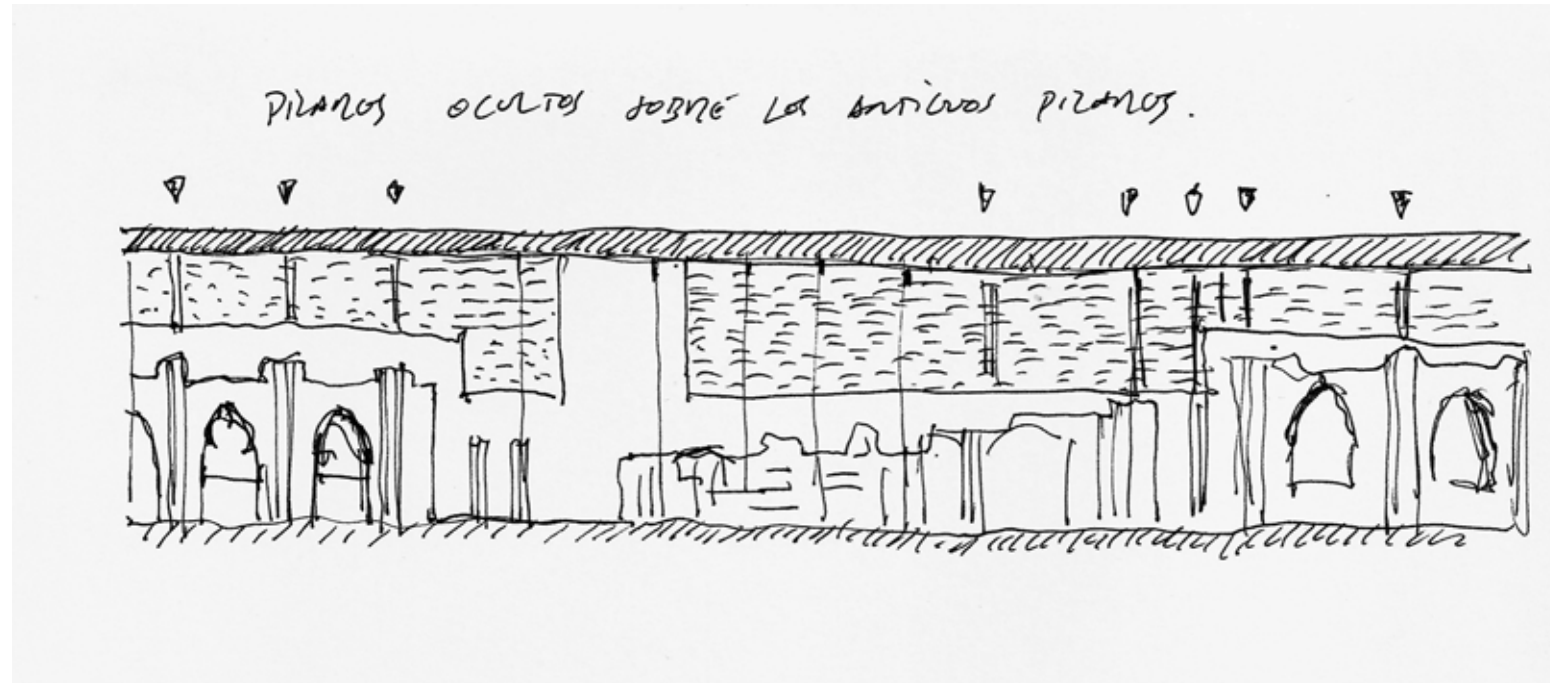 PILARES OCULTOS SOBRE LOS ANTIGUOS PILARES.